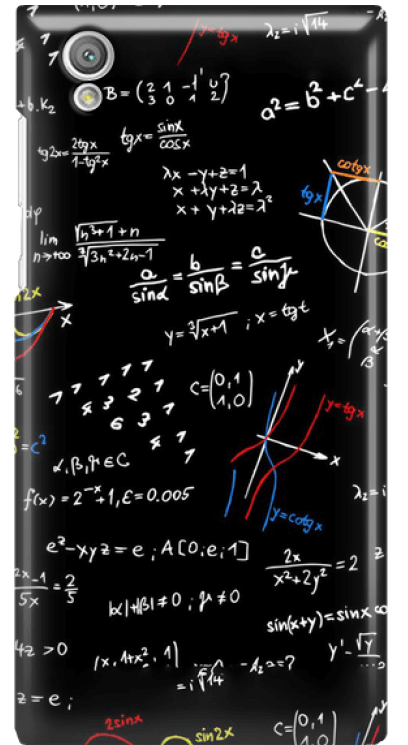 y=tgx
λ₂=i√14
+b.k₂
B=(2 1 -1 0
3 0 1 2)
a²=b²+c²-
tg2x=2tgx/1-tg²x
tgx=sinx/cosx
cotgx
tgx
λx-y+z=1
x+λy+z=λ
x+y+λz=λ²
lim n→+∞ √n³+1+n/∛3n²+2n-1
a/sinα=b/sinβ=c/sinμ
x
y=∛x+1 ; x=tgt
C=(0,1
1,0)
1 1 1 1 1
4 3 2 1
6 3 1
4 1
1
y
y=tgx
x
=c²
α,β,γ∈C
f(x)=2⁻ˣ+1,ε=0.005
y=cotgx
λ₂=i
eᶻ-xyz=e ; A[0;e;1]
2x/x²+2y²=2
z
2x-1/5x=2/5
|α|+|β|≠0 ; γ≠0
sin(x+y)=sinx co
4z>0
y'-√y
=i√14
z=e;
2sinx
sin2x
C=(0,1
1,0)